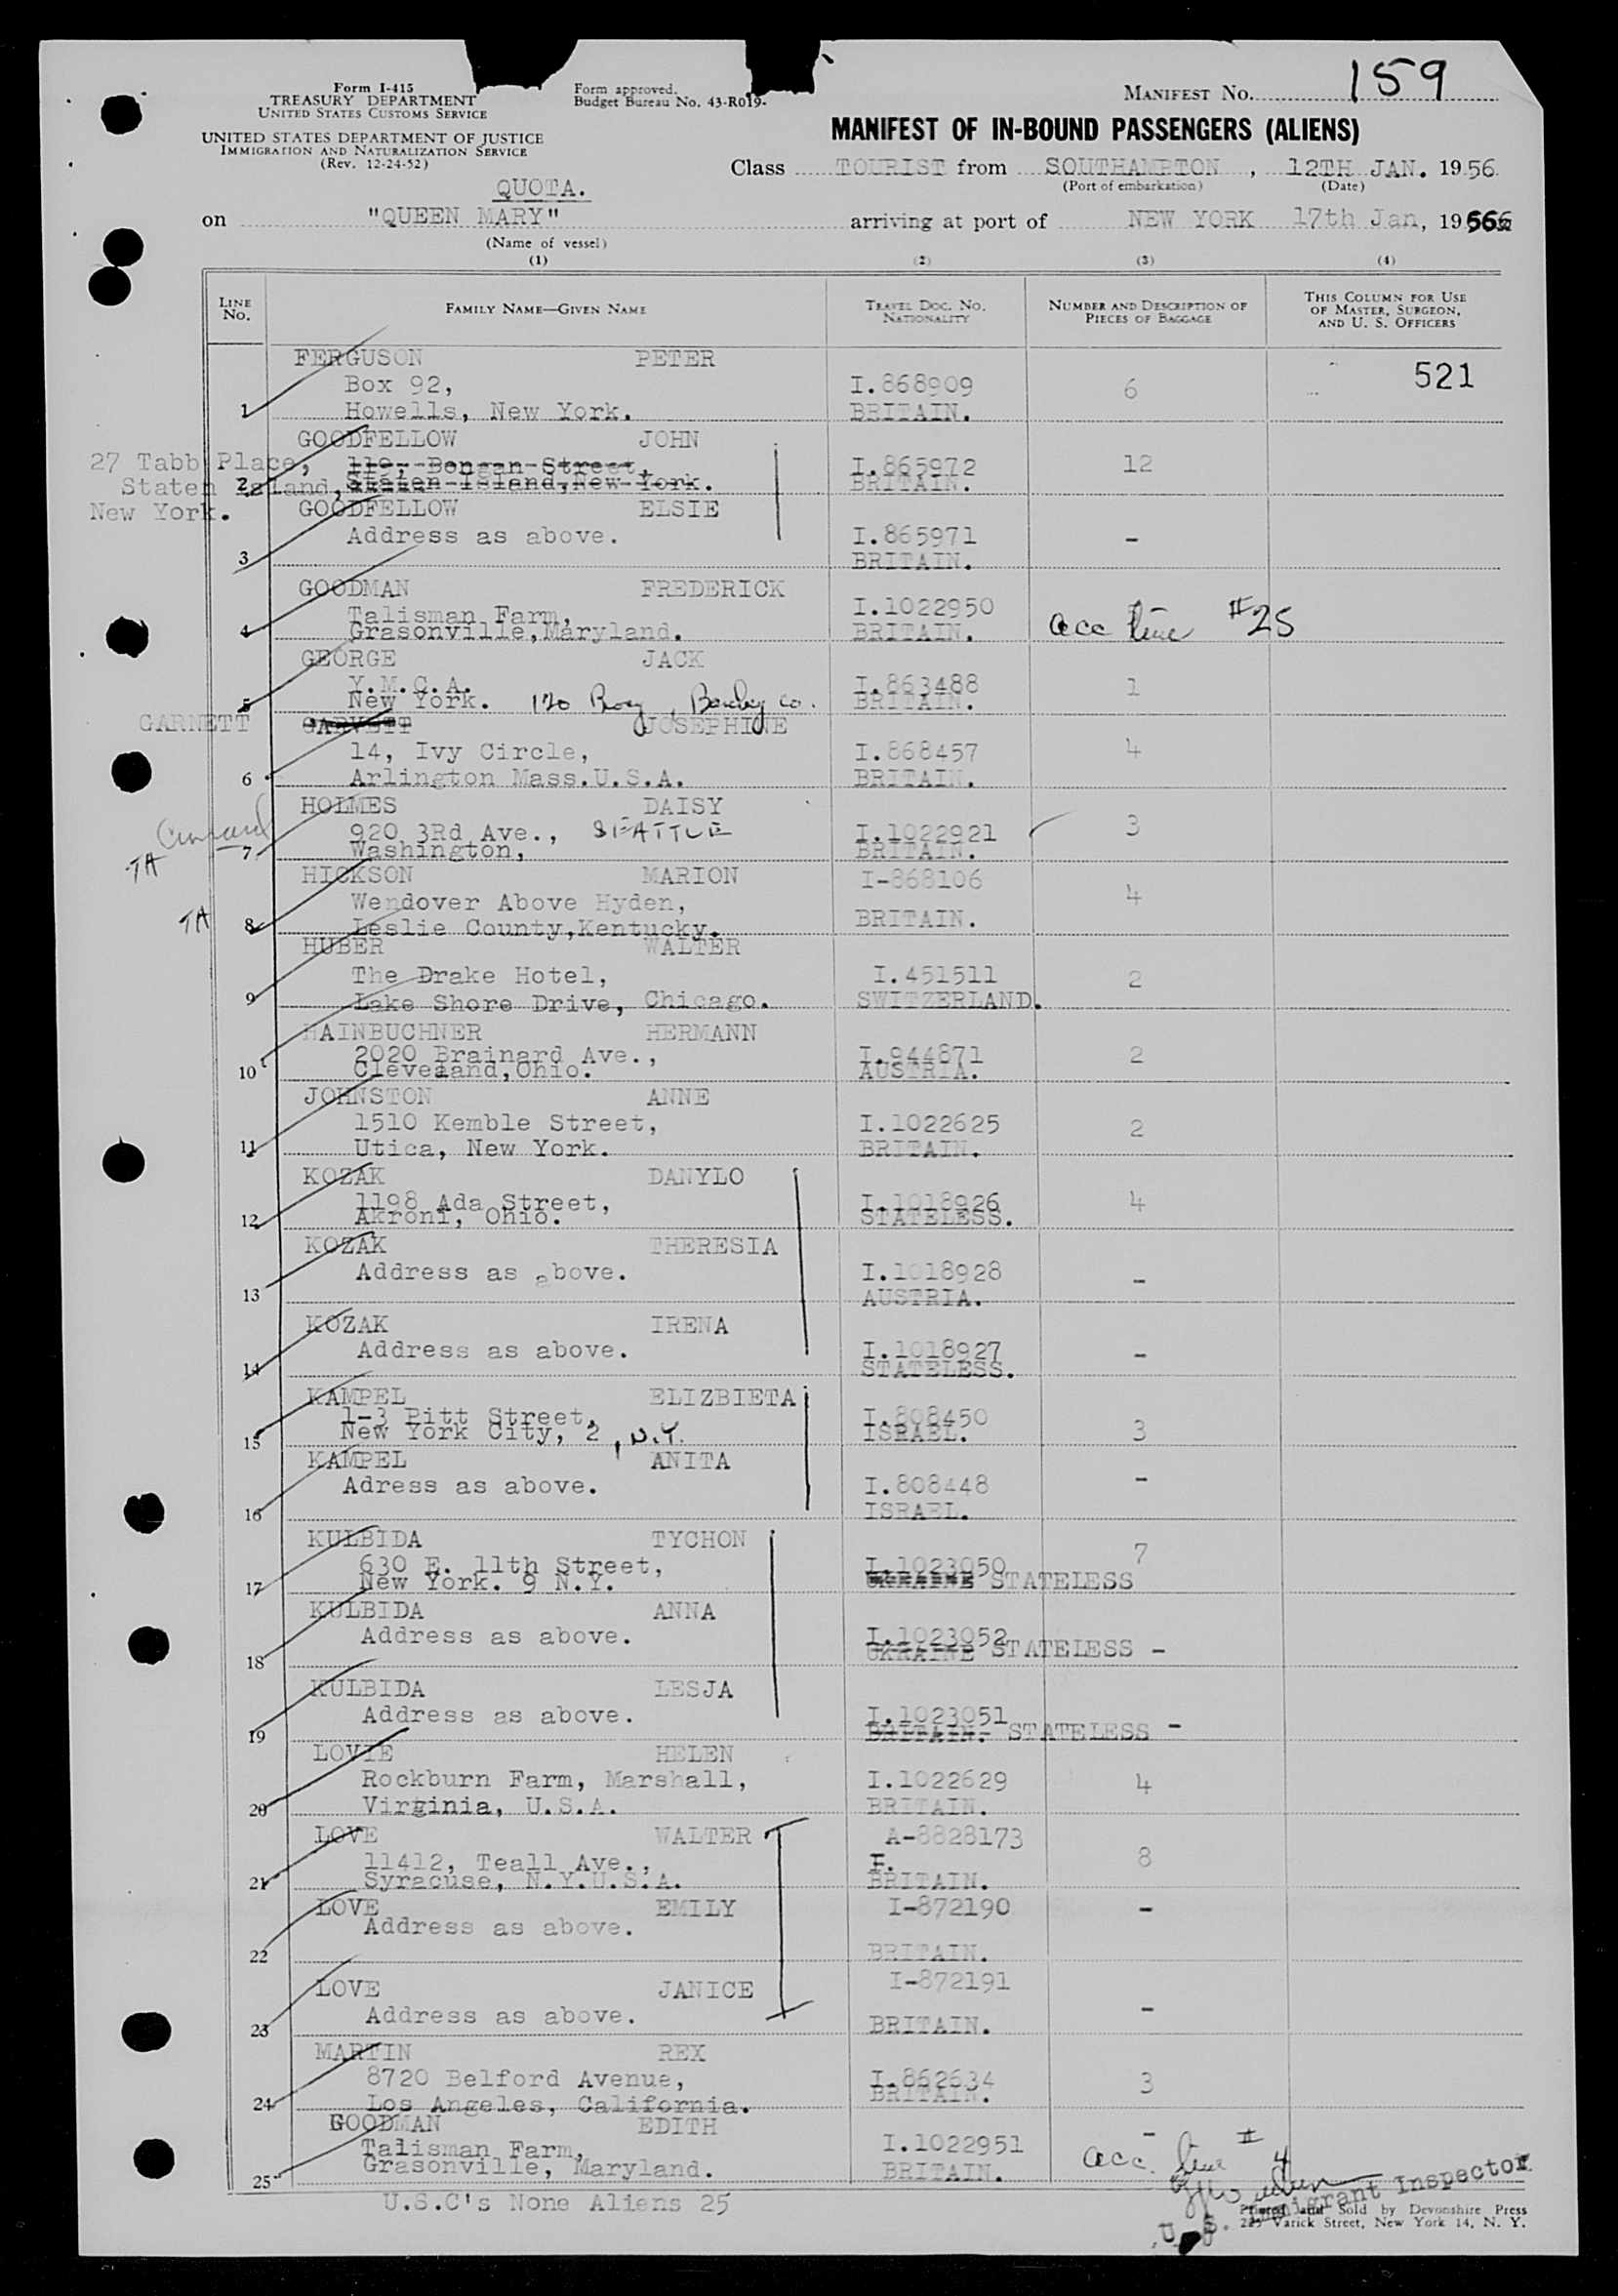 Form I-415
TREASURY DEPARTMENT
UNITED STATES CUSTOMS SERVICE
UNITED STATES DEPARTMENT OF JUSTICE
IMMIGRATION AND NATURALIZATION SERVICE
(Rev. 12-24-52)
Form approved.
Budget Bureau No. 43-R019.
MANIFEST NO. 159
MANIFEST OF IN-BOUND PASSENGERS (ALIENS)
Class TOURIST from SOUTHAMPTON , 12TH JAN. 1956
(Port of embarkation) (Date)
QUOTA.
on "QUEEN MARY" arriving at port of NEW YORK 17th Jan, 1956
(Name of vessel)
(1) (2) (3) (4)
LINE NO. FAMILY NAME—GIVEN NAME TRAVEL DOC. NO. NATIONALITY NUMBER AND DESCRIPTION OF PIECES OF BAGGAGE THIS COLUMN FOR USE OF MASTER, SURGEON, AND U. S. OFFICERS
FERGUSON PETER
Box 92, I.868909 6 521
1 Howells, New York. BRITAIN.
GOODFELLOW JOHN
27 Tabb Place, 119, Bongan Street, I.865972 12
2 Staten Island, Staten Island, New York. BRITAIN.
New York. GOODFELLOW ELSIE
Address as above. I.865971 -
3 BRITAIN.
GOODMAN FREDERICK
Talisman Farm, I.1022950
4 Grasonville, Maryland. BRITAIN. acc line #25
GEORGE JACK
Y.M.C.A. I.863488 1
5 New York. 120 BRITAIN.
GARNETT GARVETT JOSEPHINE
14, Ivy Circle, I.868457 4
6 Arlington Mass.U.S.A. BRITAIN.
HOLMES DAISY
Cunard 920 3Rd Ave., SEATTLE I.1022921 3
TA 7 Washington, BRITAIN.
HICKSON MARION I-868106
Wendover Above Hyden, 4
TA 8 Leslie County, Kentucky. BRITAIN.
HUBER WALTER
The Drake Hotel, I.451511 2
9 Lake Shore Drive, Chicago. SWITZERLAND.
HAINBUCHNER HERMANN
2020 Brainard Ave., I.944871 2
10 Cleveland, Ohio. AUSTRIA.
JOHNSTON ANNE
1510 Kemble Street, I.1022625 2
11 Utica, New York. BRITAIN.
KOZAK DANYLO
1198 Ada Street, I.1018926 4
12 Akroni, Ohio. STATELESS.
KOZAK THERESIA
Address as above. I.1018928 -
13 AUSTRIA.
KOZAK IRENA
Address as above. I.1018927 -
14 STATELESS.
KAMPEL ELIZBIETA
1-3 Pitt Street, I.808450 3
15 New York City, 2 , N.Y. ISRAEL.
KAMPEL ANITA
Adress as above. I.808448 -
16 ISRAEL.
KULBIDA TYCHON
630 E. 11th Street, I.1023050 7
17 New York. 9 N.Y. UKRAINE STATELESS
KULBIDA ANNA
Address as above. I.1023052
18 UKRAINE STATELESS -
KULBIDA LESJA
Address as above. I.1023051
19 BRITAIN. STATELESS -
LOVIE HELEN
Rockburn Farm, Marshall, I.1022629 4
20 Virginia, U.S.A. BRITAIN.
LOVE WALTER A-8828173
11412, Teall Ave., I. 8
21 Syracuse, N.Y.U.S.A. BRITAIN.
LOVE EMILY I-872190 -
Address as above.
22 BRITAIN.
LOVE JANICE I-872191
Address as above. -
23 BRITAIN.
MARTIN REX
8720 Belford Avenue, I.862634 3
24 Los Angeles, California. BRITAIN.
GOODMAN EDITH -
Talisman Farm, I.1022951 acc. line # 4
25 Grasonville, Maryland. BRITAIN.
U.S.C's None Aliens 25
U. S. Immigrant Inspector
Printed and Sold by Devonshire Press
225 Varick Street, New York 14, N. Y.